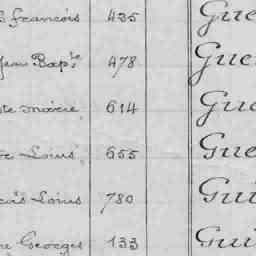 François 435 Gue
Jean Bapte 478 Gue
te marie 614 Gue
Loüis 655 Gue
çois Loüis 780 Gui
re Georges 133 Gui